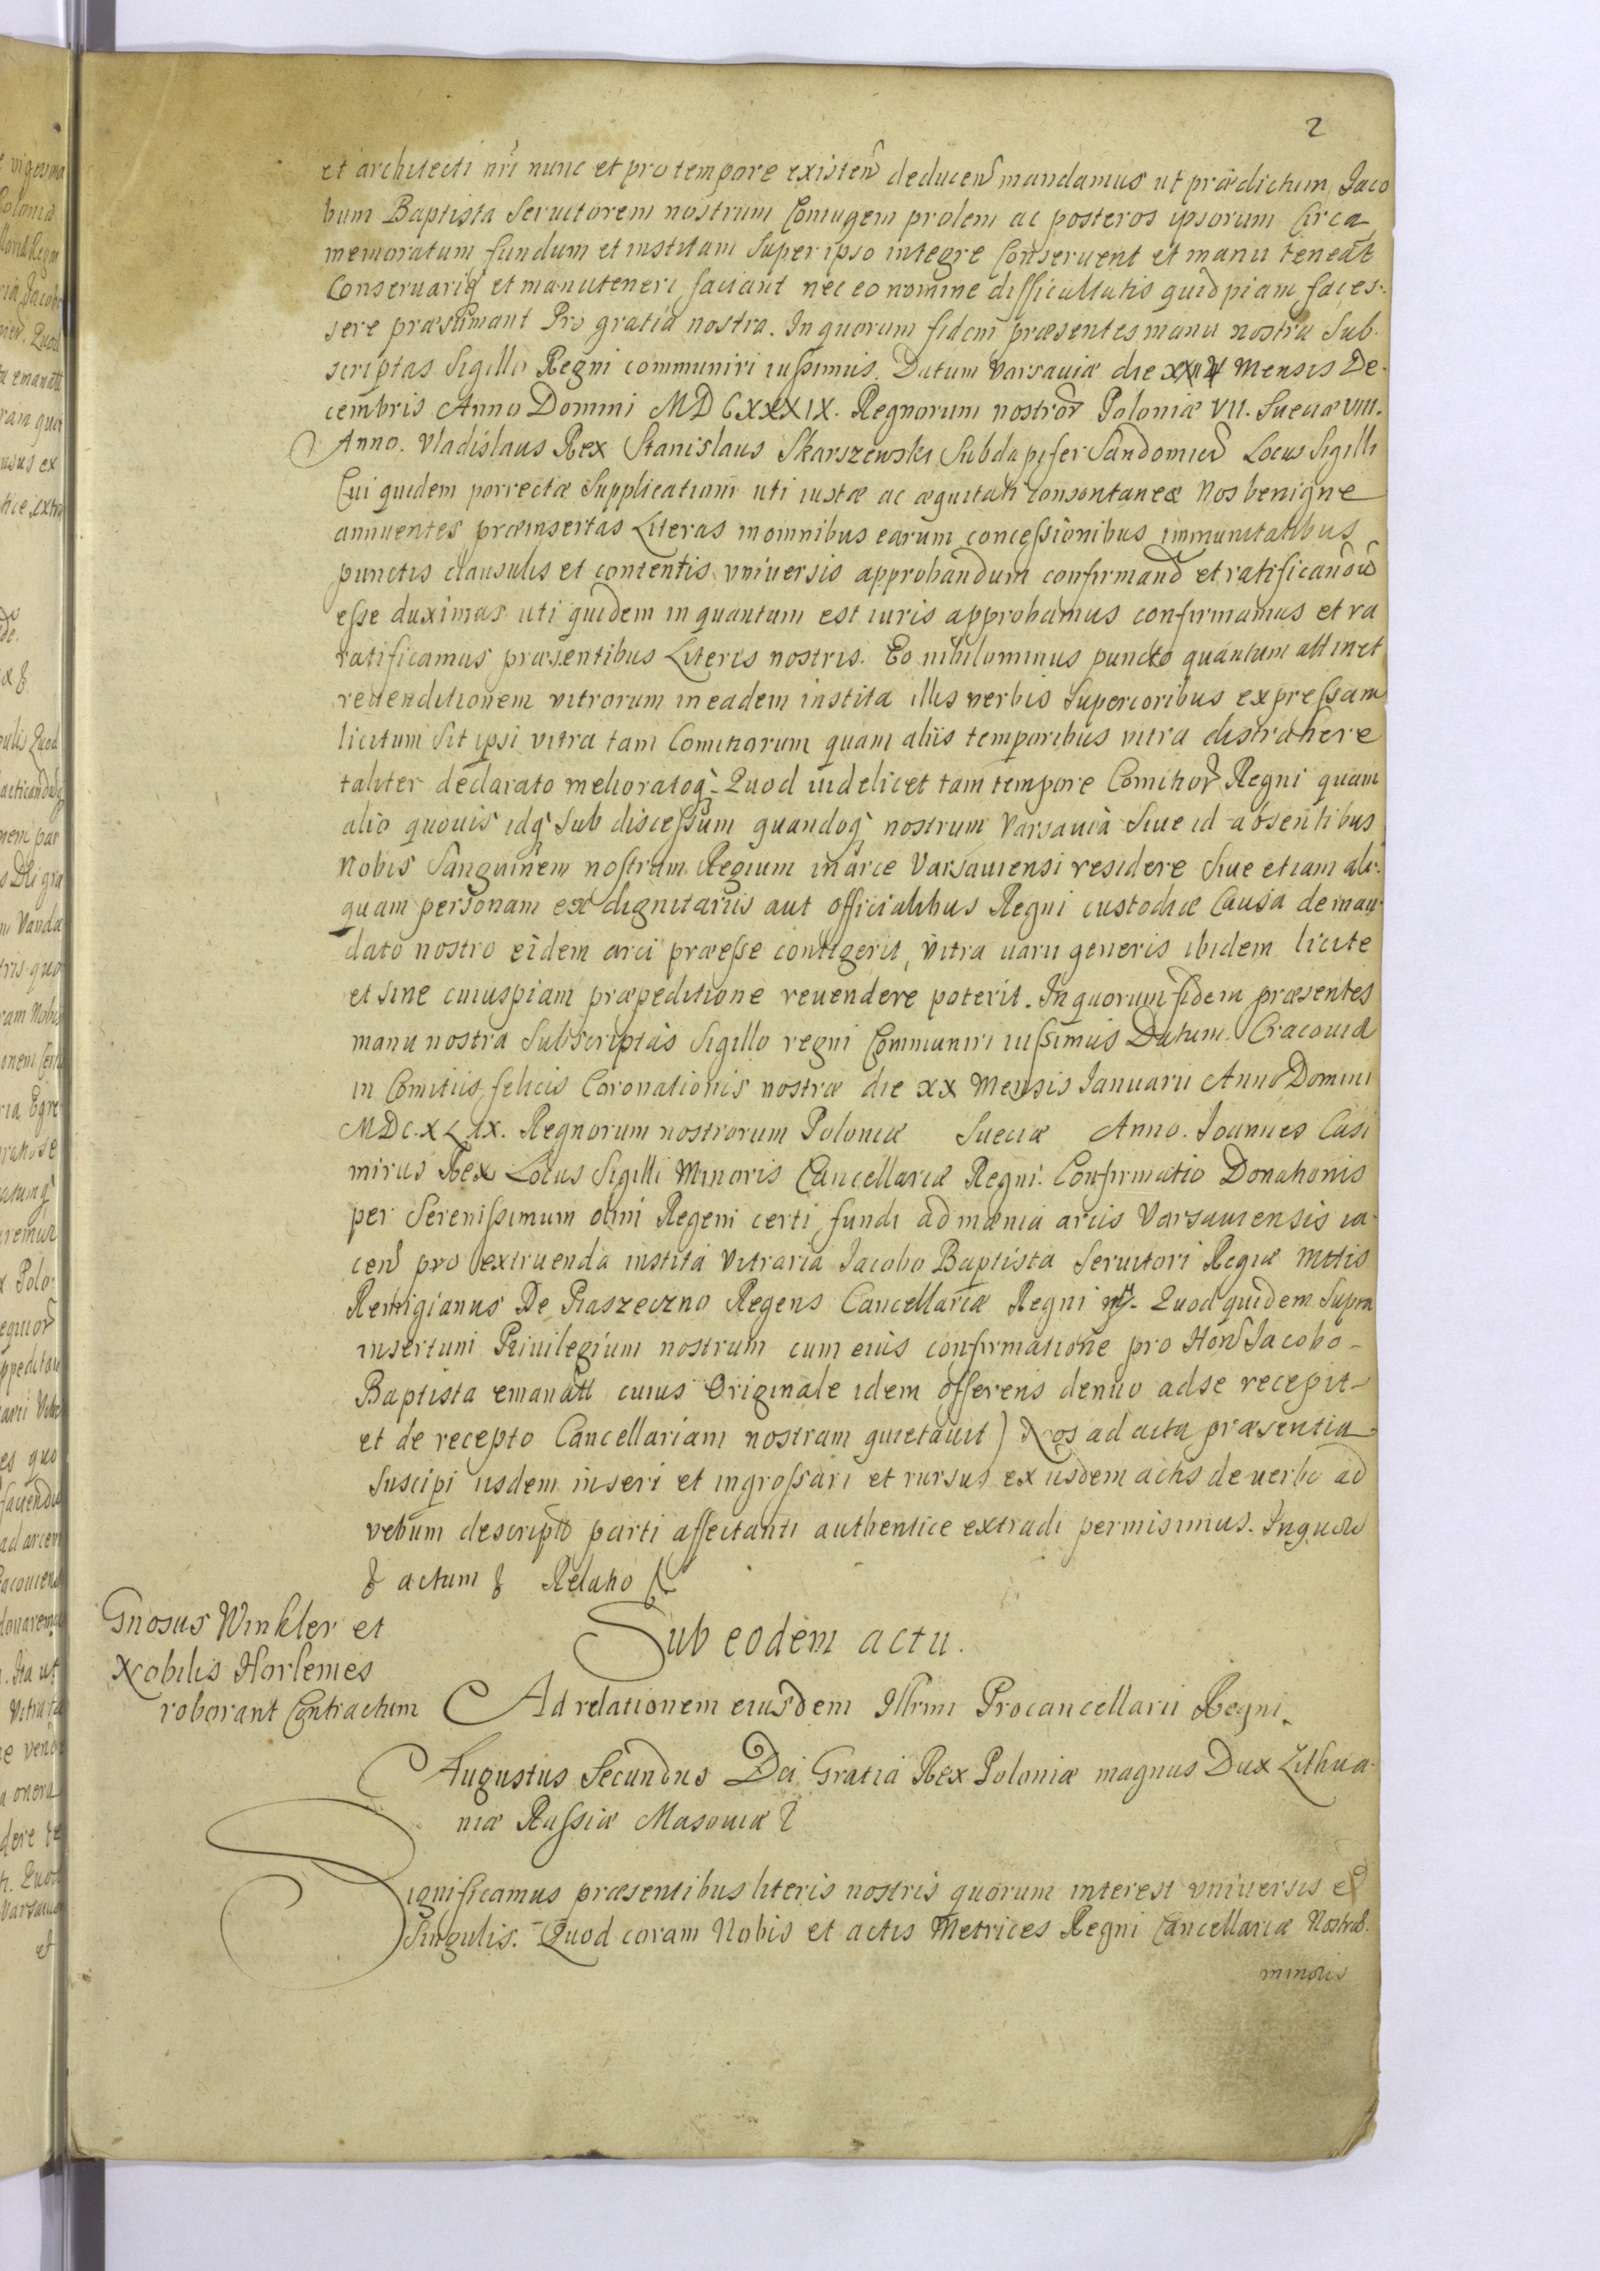 2
et architecti nri nunc et pro tempore existen deducen mandamus ut prædictum Jaco
bum Baptista Seruitorem nostrum Coniugem prolem ac posteros ipsorum Circa
memoratum fundum et institam super ipso integre Conseruent et manu teneāt
Conseruariq et manuteneri faciant nec eo nomine difficultatis quidpiam faces-
sere præsumant Pro gratia nostra. In quorum fidem præsentes manu nostra Sub-
scriptas Sigillo Regni communiri iussimus. Datum Varsauiæ die Mensis De-
cembris Anno Domini MDCXXXIX. Regnorum nostror Poloniæ VII. Sueciæ VIII.
Anno. Vladislaus Rex Stanislaus Skarszewski Subdapifer Sandomier Locus Sigilli
Cui quidem porrectæ Supplicationi uti iustæ ac æquitati consontaneæ Nos benigne
annuentes præinsertas Literas in omnibus earum concessionibus immunitatibus
punctis clausulis et contentis vniversis approbandum confirmand et ratificandu
esse duximus uti quidem in quantum est iuris approbamus confirmamus et ra
ratificamus præsentibus Literis nostris. Eo nihilominus puncto quantum attinet
reuenditionem vitrorum in eadem instita illis verbis Superioribus expressam
licitum sit ipsi vitra tam Comitiorum quam aliis temporibus vitra distrahere
taliter declarato melioratoq. Quod uidelicet tam tempore Comitior Regni quam
alio quouis idq sub discessum quandoq nostrum Varsauia Siue id absentibus
Nobis Sanguinem nostrum Regium in arce Varsauiensi residere Siue etiam ali-
quam personam ex dignitariis aut officialibus Regni custodiæ Causa de man-
dato nostro eidem arci præesse contigerit, vitra uarii generis ibidem licite
et sine cuiuspiam præpeditione reuendere poterit. In quorum fidem præsentes
manu nostra Subscriptas Sigillo regni Communiri iussimus Datum Cracouiæ
in Comitiis felicis Coronationis nostræ die XX Mensis Ianuarii Anno Domini
MDC.XLIX. Regnorum nostrorum Poloniæ Sueciæ Anno. Ioannes Casi
mirus Rex Locus Sigilli Minoris Cancellariæ Regni. Confirmatio Donationis
per Serenissimum olim Regem certi fundi ad mænia arcis Varsauiensis ia-
cen pro extruenda instita Vitraria Jacobo Baptista Seruitori Regiæ Mttis
Remigianus De Piaszeczno Regens Cancellariæ Regni Quod quidem Supra
insertum Priuilegium nostrum cum eius confirmatione pro Hon Jacobo-
Baptista emanatt cuius Originale idem offerens denuo ad se recepit
et de recepto Cancellariam nostram quietauit) Nos ad acta præsentia
Suscipi iisdem inseri et ingrossari et rursus ex iisdem actis de uerbo ad
vebum descriptū parti affectanti authentice extradi permisimus. In quoru
& actum & Relatio &
Sub eodem actu.
Gnosus Winkler et
Nobilis Horlemes
roborant Contractum
Ad relationem eiusdem Illrmi Procancellarii Regni
Augustus Secundus Dei Gratia Rex Poloniæ magnus Dux Lithua-
niæ Russiæ Masouiæ &
Significamus præsentibus literis nostris quorum interest vniuersis et
Singulis. Quod coram Nobis et actis Metrices Regni Cancellariæ Nostræ
minoris